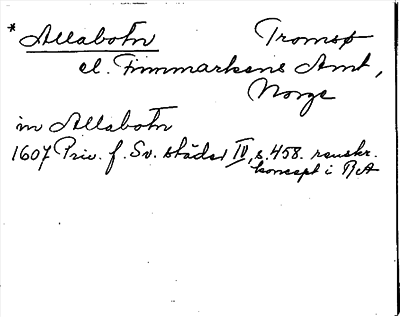 * Allabotn Tromsø
el. Finnmarkens Amt,
Norge
in Allabotn
1607 Priv. f. Sv. städer IV, s. 458. renskr.
koncept i RA